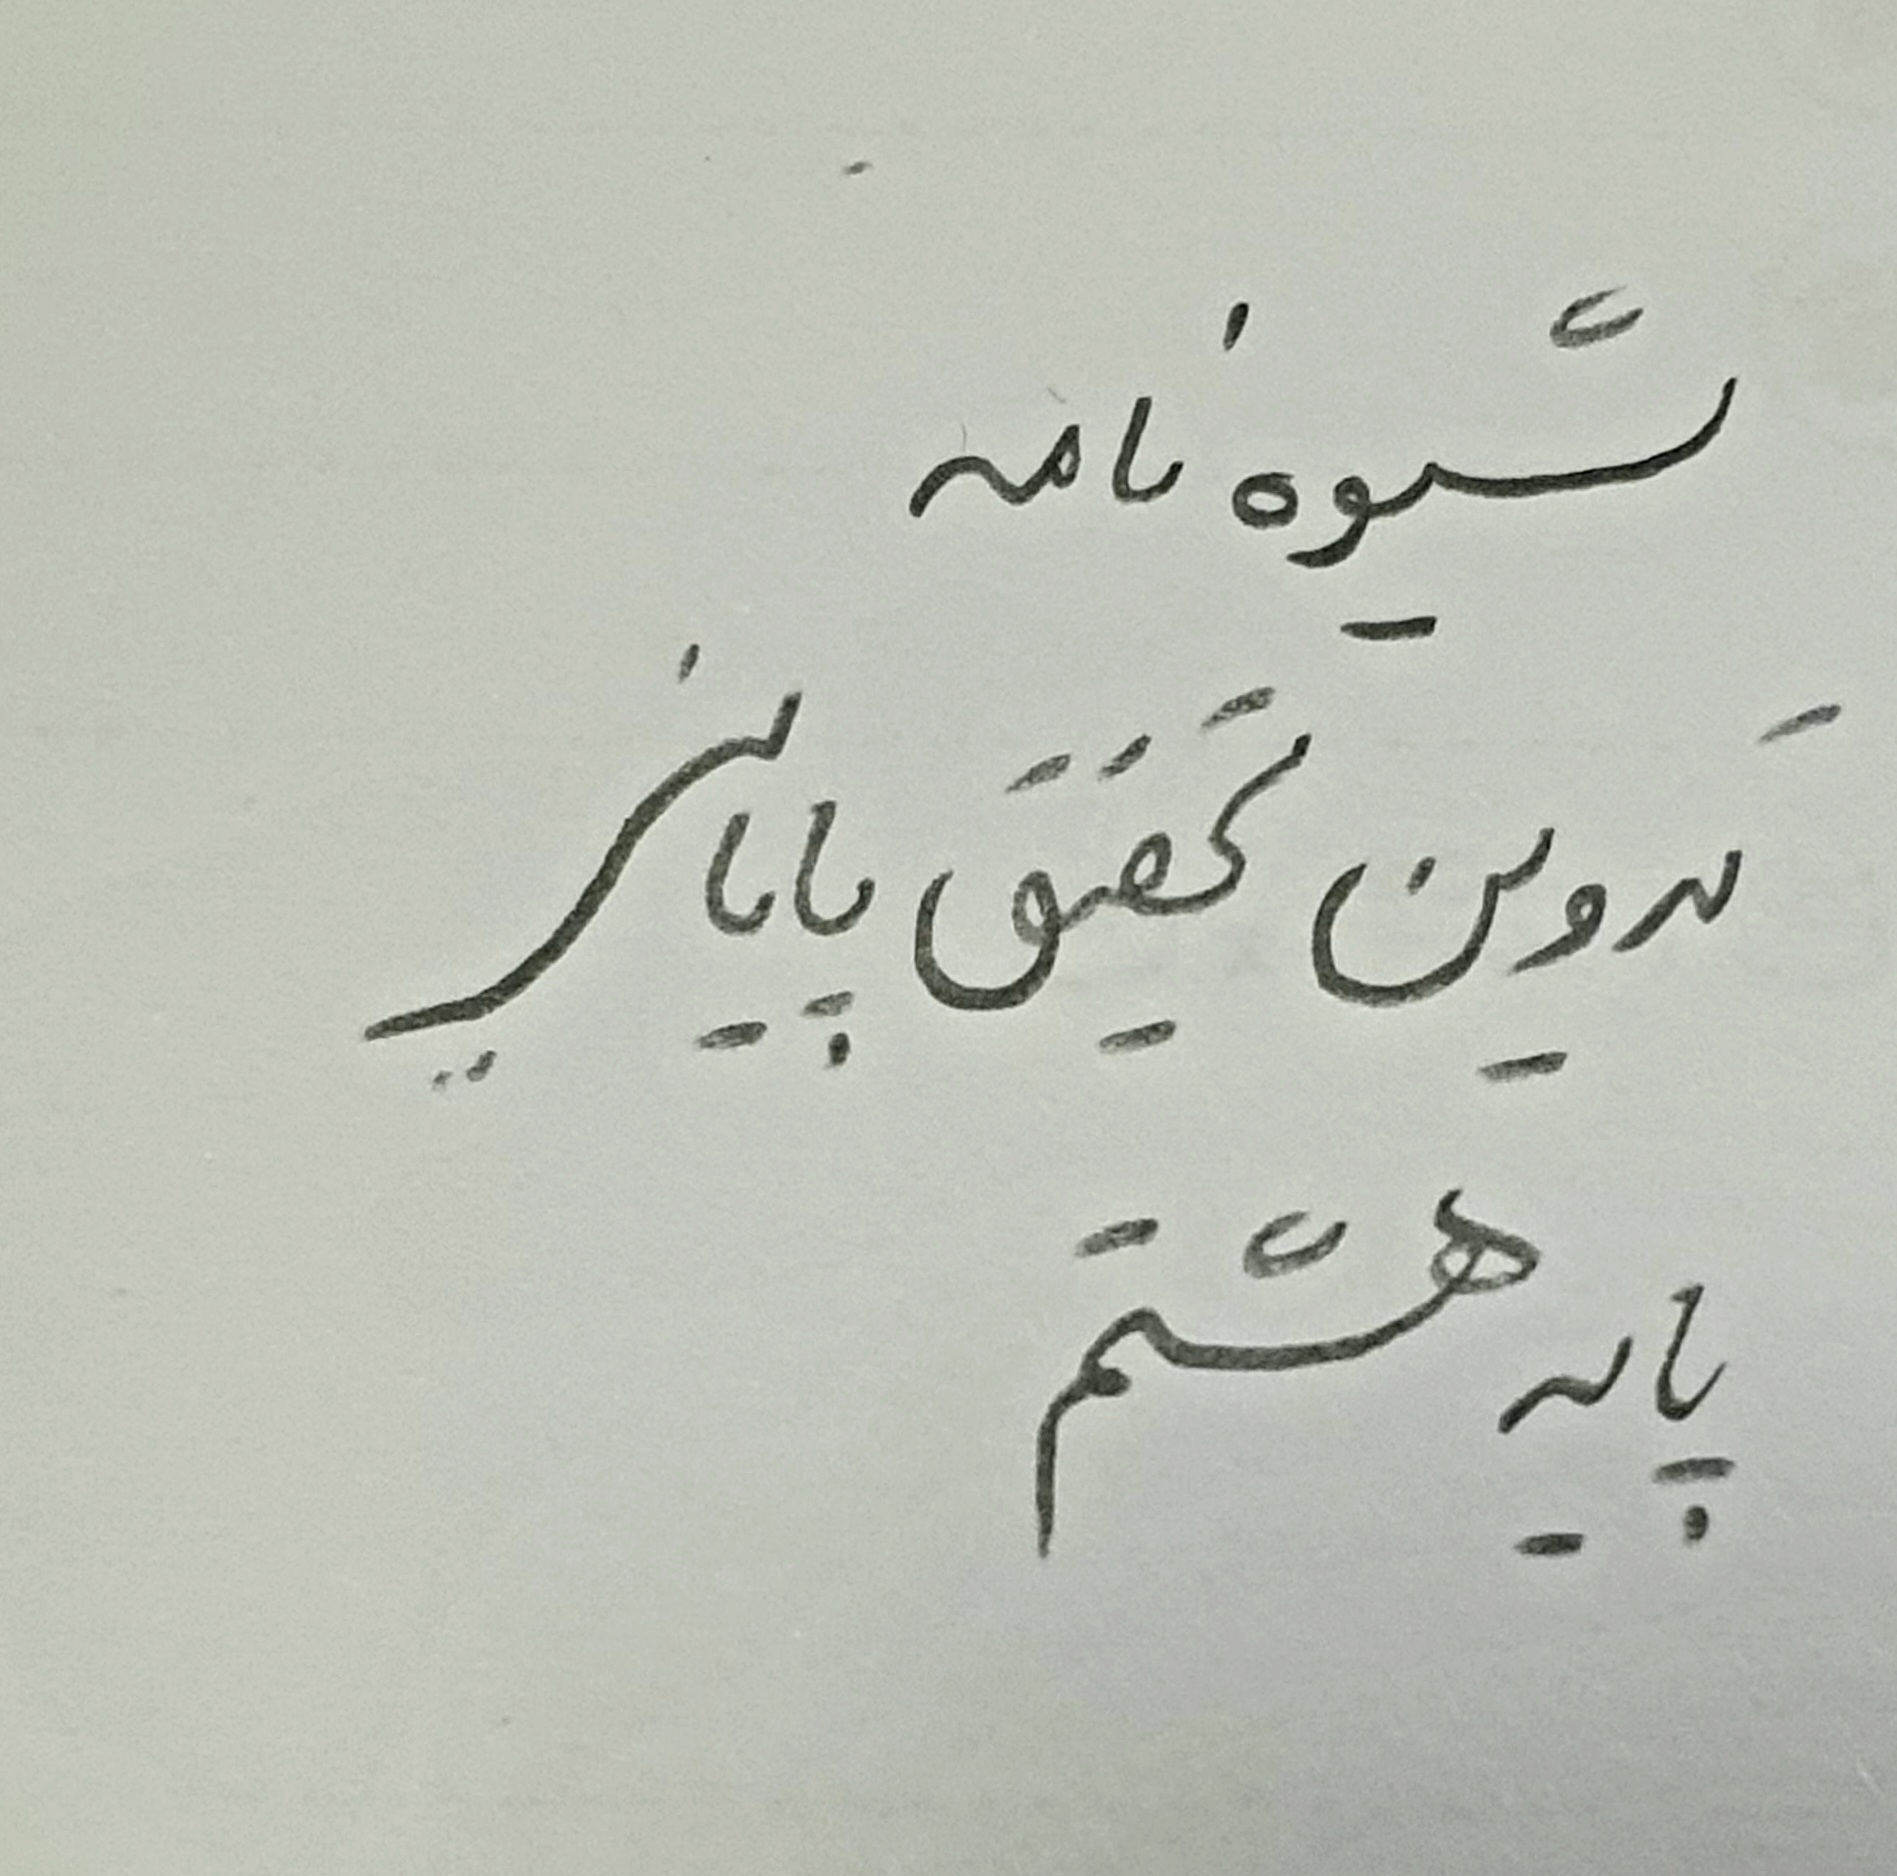 شیوه نامه
تدوین تحقیق پایانی
پایه هشتم